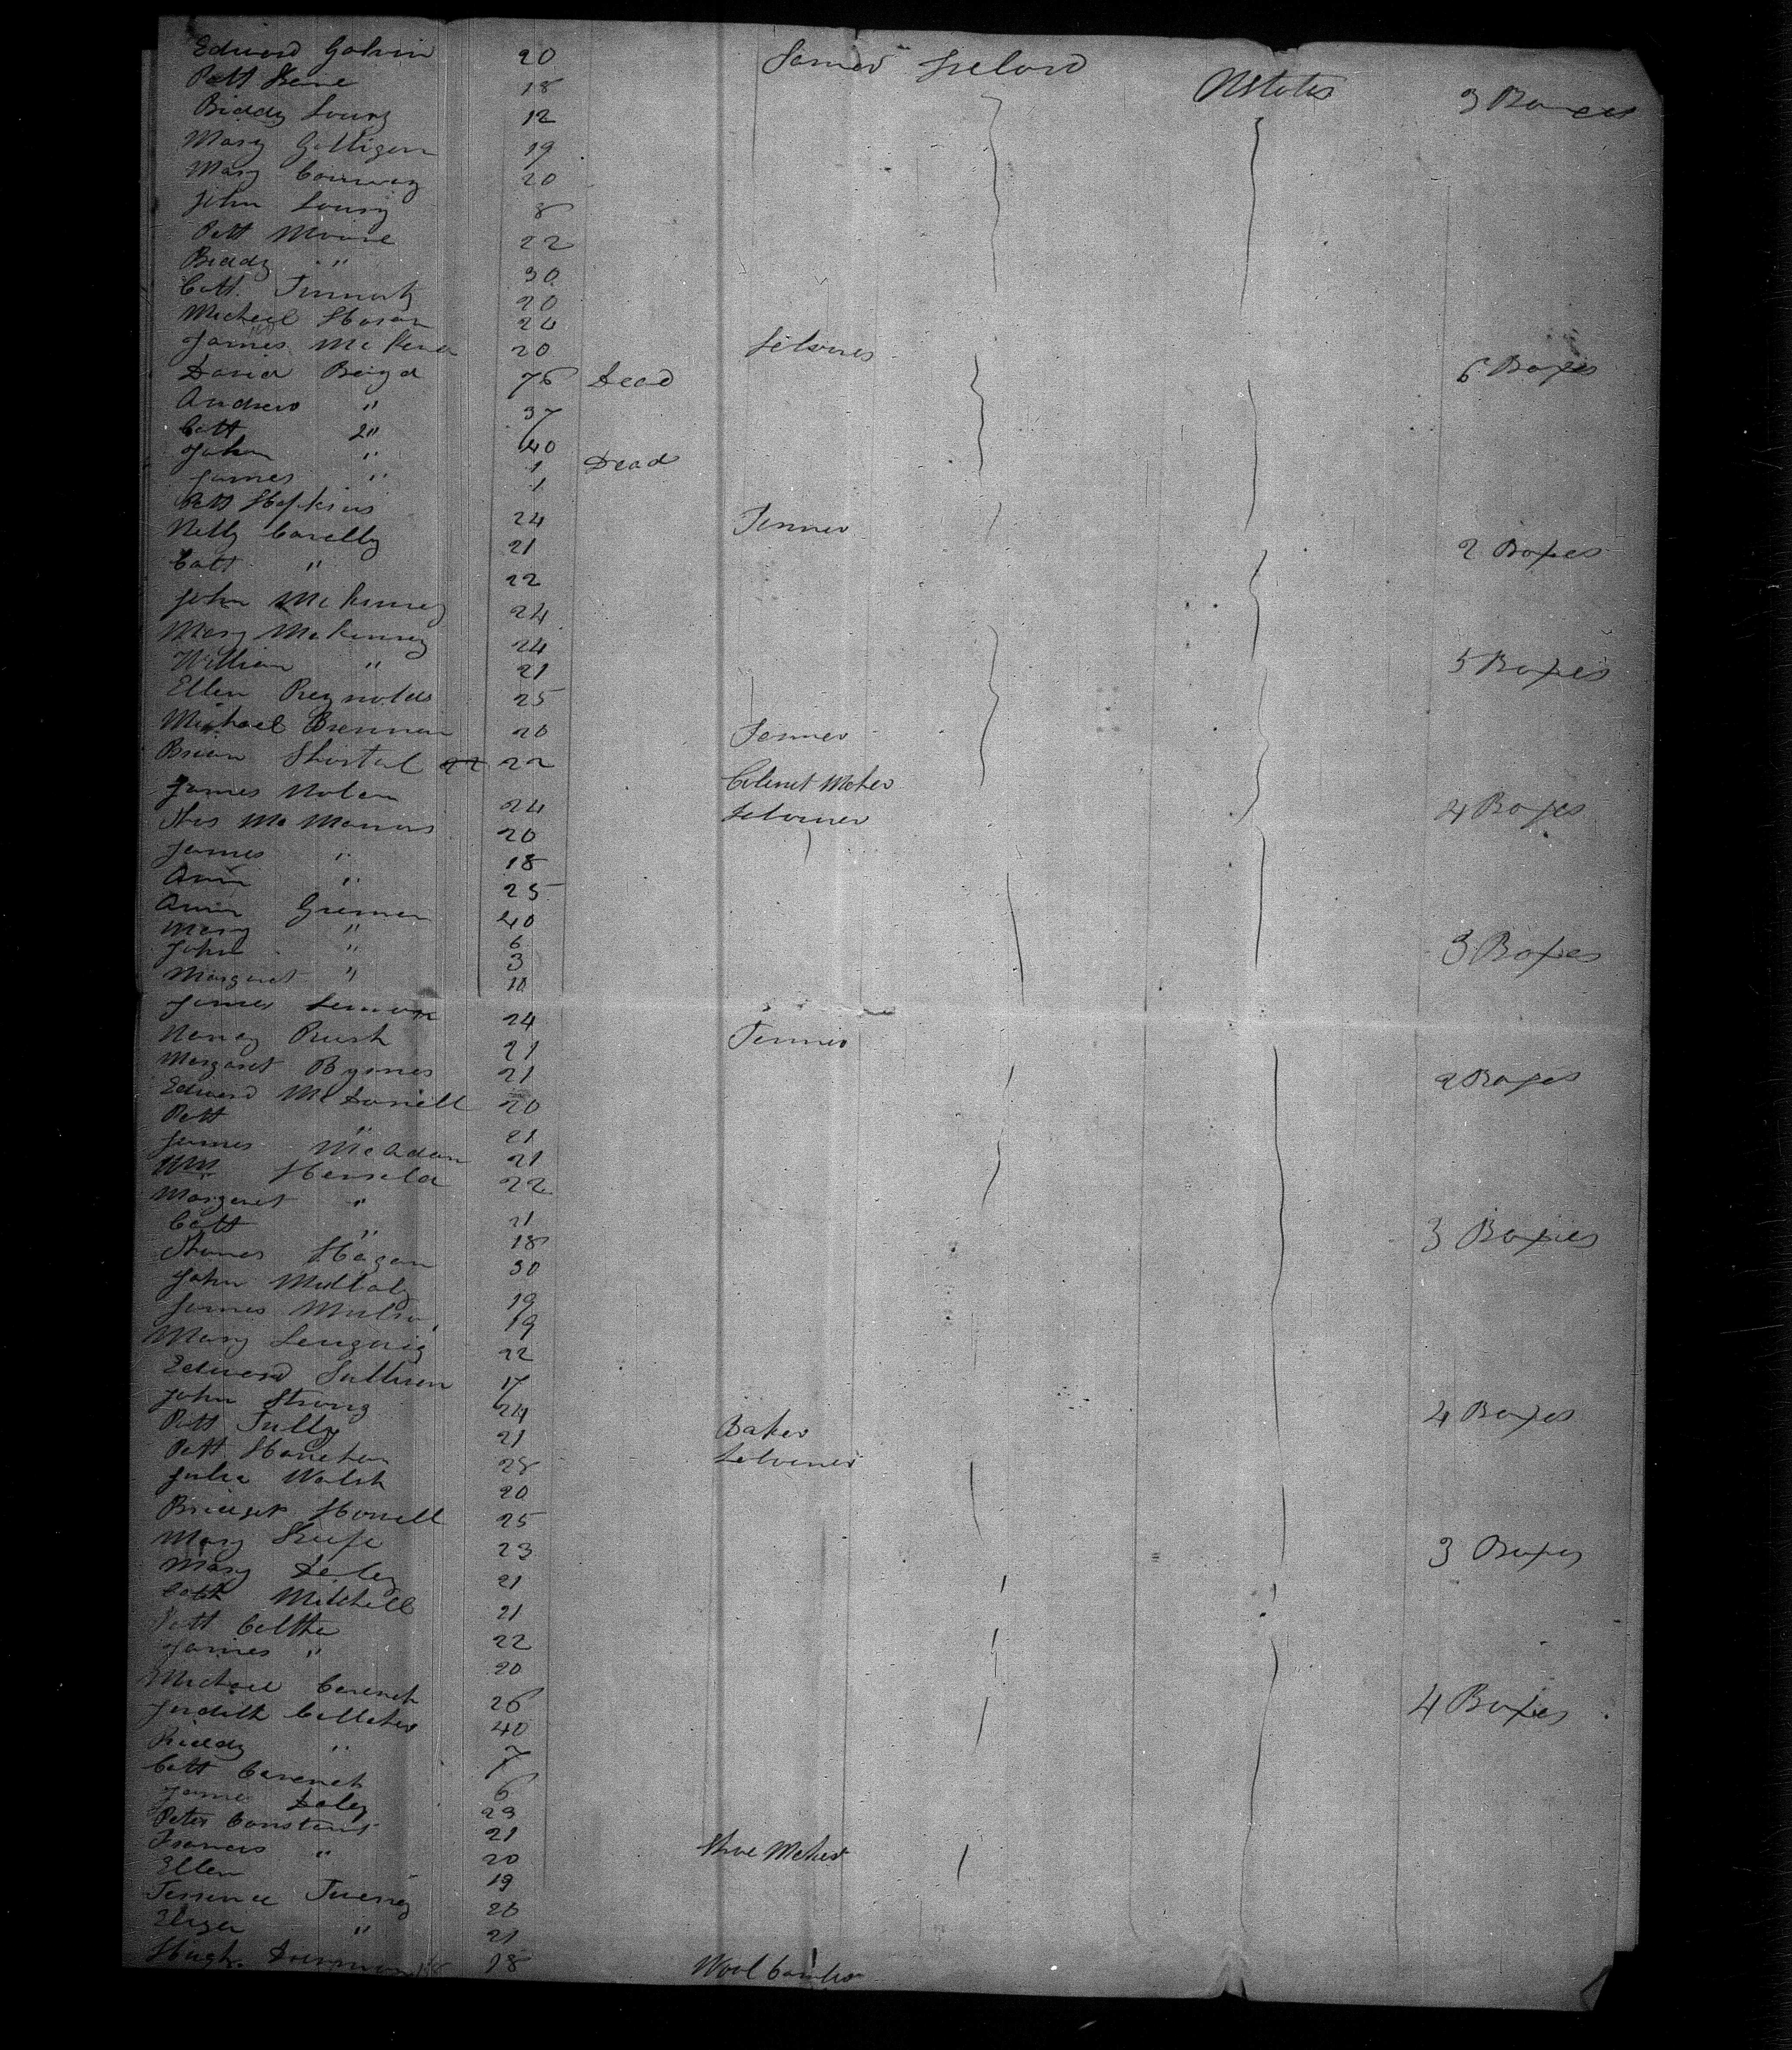 Edward Galvin 20 Farmer Ireland UStates 3 Boxes
Patt Keine 18
Biddy Loury 12
Mary Galligan 19
Mary Conway 20
John Loury 8
Patt Moore 22
Biddy " 30
Catt. 20
Micheal Horan 24
James McKena 20 Laborer
David Boyd 76 Dead 6 Boxes
Andrew " 37
Catt 2" 40
John " 1 Dead
James " 1
Patt Hopkins 24 Farmer
Nelly Conelly 21 2 Boxes
Catt " 22
John McKinney 24
Mary McKinney 24
William " 21 5 Boxes
Ellen Reynolds 25
Michael Brennan 20 Farmer
Brian Shortal 22 22 Cabinet Maker
James Nolan 24 Laborer 4 Boxes
Thos McManus 20
James " 18
Ann " 25
Ann 40
Mary " 6
John " 3 3 Boxes
Margaret " 11
James Lennon 24 Farmer
Nancy Rush 21
Margaret Byrnes 21 2 Boxes
Edward McDonell 20
Patt " 21
James McAdam 21
Wm 22
Margaret " 21
Catt " 18 3 Boxes
Thomas Hagan 30
John Mullaly 19
James 19
Mary 22
Edward Sullivan 17
John Strong 24 4 Boxes
Patt Tully 21 Baker
Patt 28 Laborer
Julia Walsh 20
Bridget Howell 25
Mary Keefe 23 3 Boxes
Mary Daley 21
Catt Mitchell 21
Patt 22
James " 20
Michael Cavenah 26 4 Boxes
Judith 40
Biddy " 7
Catt Cavenah 6
James Daley 23
Peter 21
Francis " 20 Shoe Maker
Ellen 19
Terrence 20
Eliza " 21
Hugh 18 Wool Comber